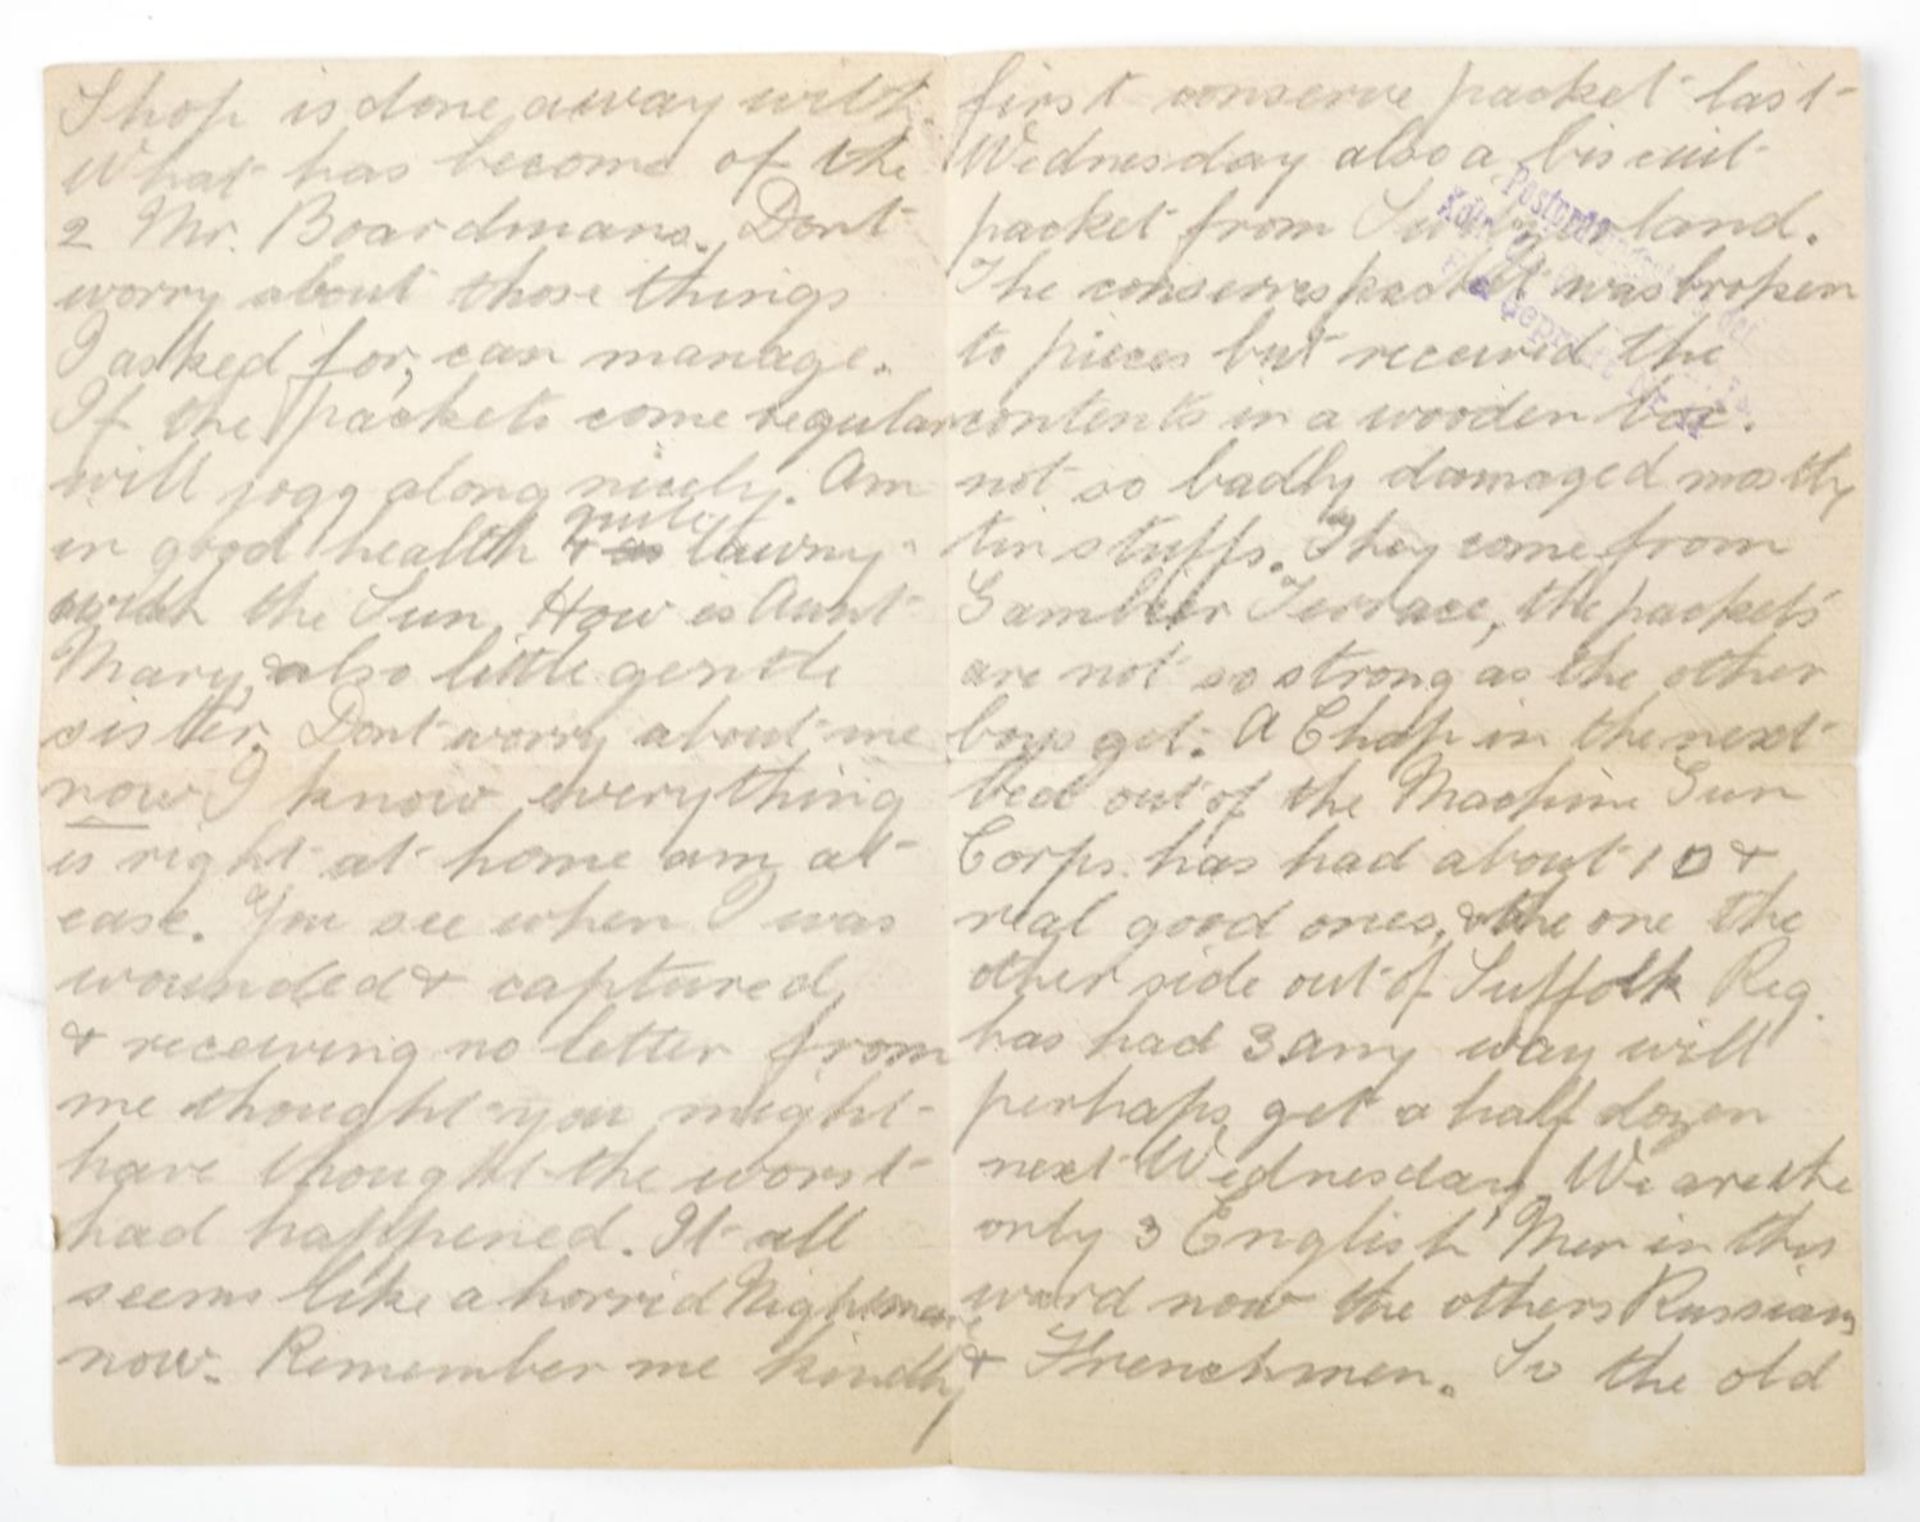 Shop is done away with.
What has become of the
2 Mr. Boardmans. Dont
worry about those things
I asked for, can manage.
If the packets come regular
will jogg along nicely. Am
quite
in good health & as tawny
with the Sun. How is Aunt
Mary, also little gentle
sister. Dont worry about me
now I know everything
is right at home am at
ease. You see when I was
wounded & captured,
& receiving no letter from
me thought you might
have thought the worst
had happened. It all
seems like a horrid Nightmare
now. Remember me kindly
first conserve packet last
Wednesday also a biscuit
packet from Switzerland.
The conserves packet was broken
to pieces but received the
contents in a wooden box.
not so badly damaged mostly
tin stuffs. They come from
Gambier Terrace, the packets
are not so strong as the other
boys get. A Chap in the next
bed out of the Machine Gun
Corps. has had about 10 &
real good ones, & the one the
other side out of Suffolk Reg.
has had 3 any way will
perhaps get a half dozen
next Wednesday. We are the
only 3 English Men in this
ward now the others Russians
& Frenchmen. So the old
Geprüft